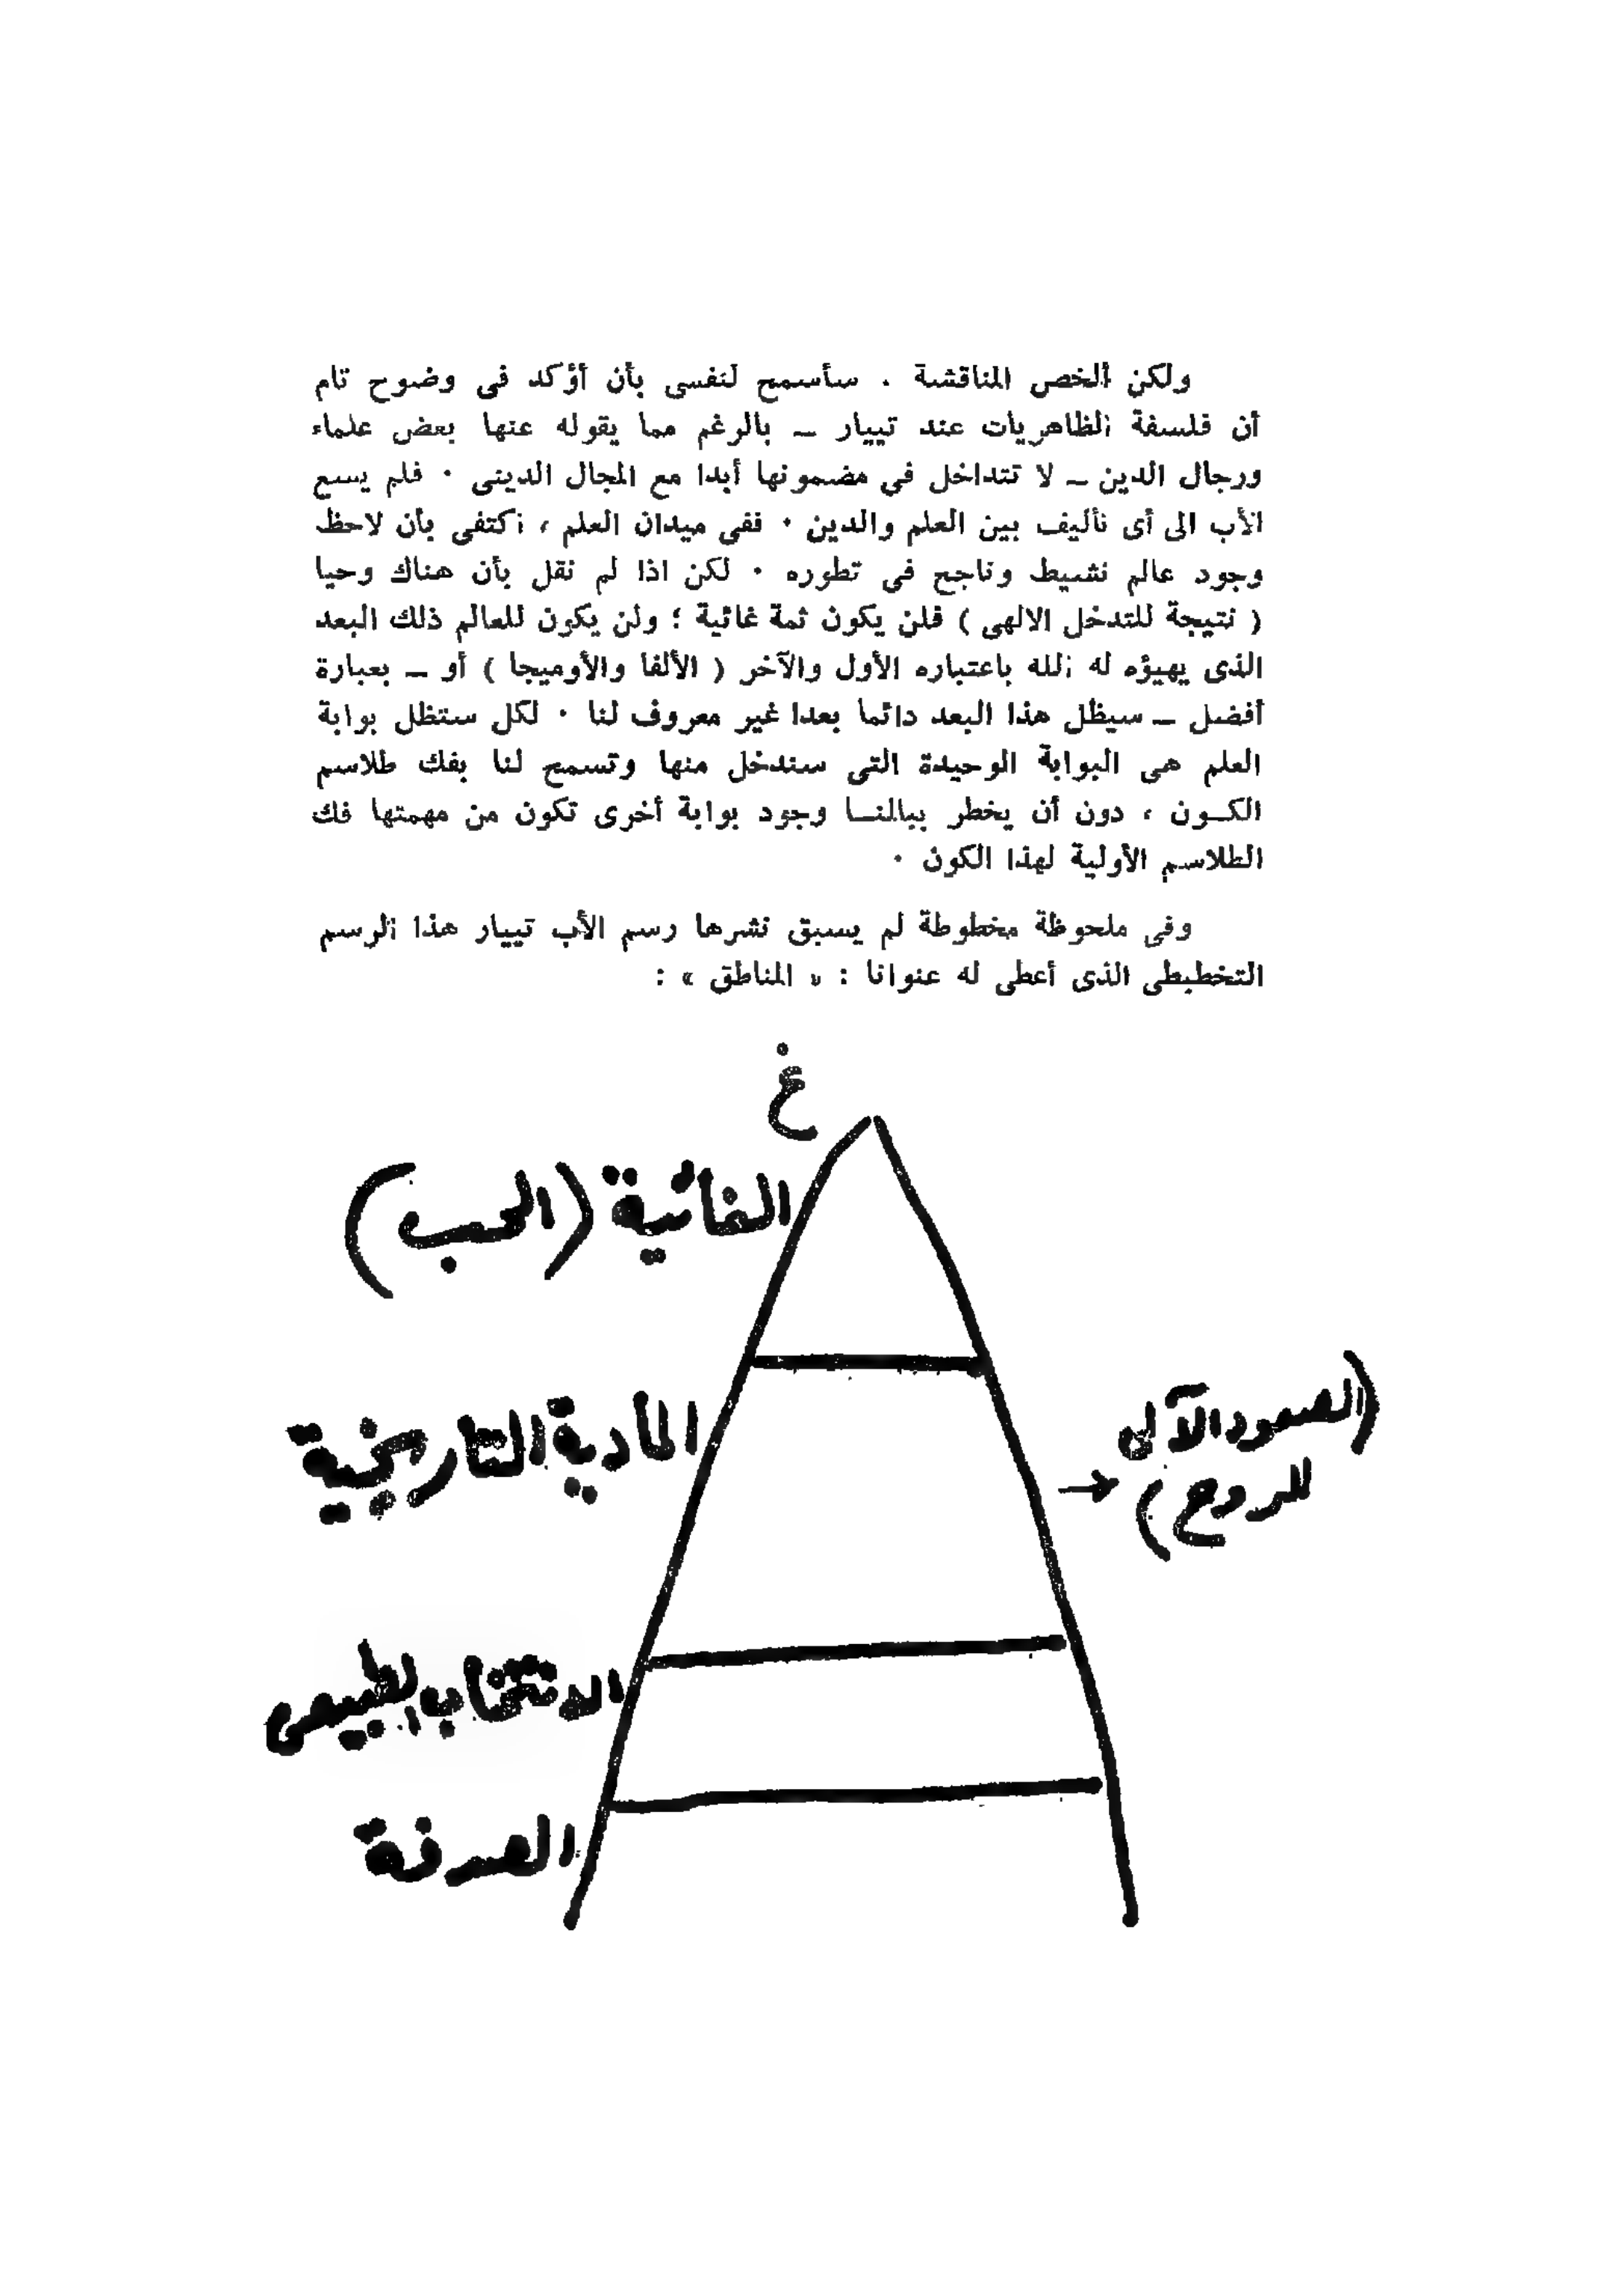 ولكن ألخص المناقشة . سأسمح لنفسى بأن أؤكد فى وضوح تام
أن فلسفة الظاهريات عند تييار ــ بالرغم مما يقوله عنها بعض علماء
ورجال الدين ــ لا تتداخل في مضمونها أبدا مع المجال الدينى · فلم يسع
الأب الى أى تأليف بين العلم والدين · ففى ميدان العلم ، اكتفى بأن لاحظ
وجود عالم نشيط وناجح فى تطوره · لكن اذا لم نقل بأن هناك وحيا
( نتيجة للتدخل الالهى ) فلن يكون ثمة غائية ؛ ولن يكون للعالم ذلك البعد
الذى يهيؤه له الله باعتباره الأول والآخر ( الألفا والأوميجا ) أو ــ بعبارة
أفضل ــ سيظل هذا البعد دائما بعدا غير معروف لنا · لكل ستظل بوابة
العلم هى البوابة الوحيدة التى سندخل منها وتسمح لنا بفك طلاسم
الكــون ، دون أن يخطر ببالنــا وجود بوابة أخرى تكون من مهمتها فك
الطلاسم الأولية لهذا الكون ·
وفى ملحوظة مخطوطة لم يسبق نشرها رسم الأب تييار هذا الرسم
التخطيطى الذى أعطى له عنوانا : « المناطق » :
غ
الغائية (الحب)
المادية التاريخية
(الصعود الآلى
للروح)
الانتخاب الطبيعى
الصدفة